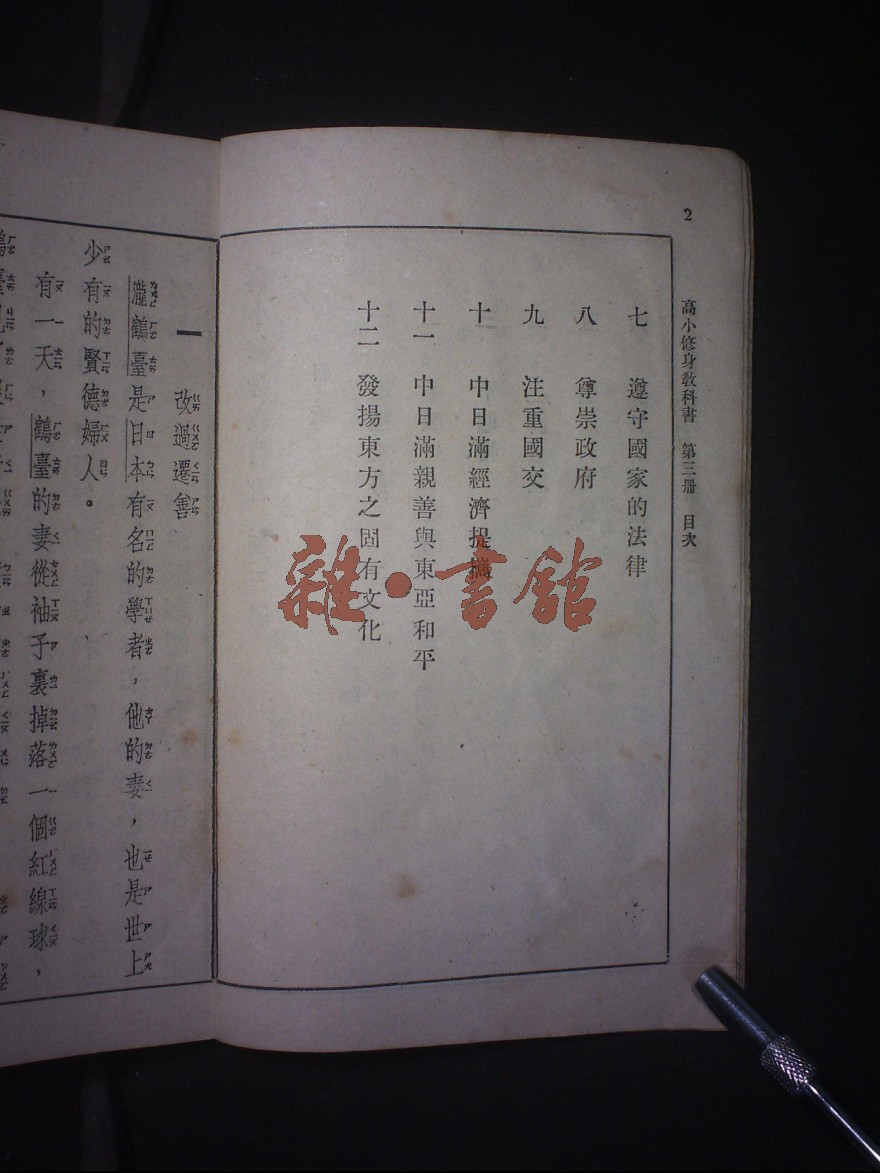 2
高小修身教科書 第三冊 目次
七 遵守國家的法律
八 尊崇政府
九 注重國交
十 中日滿經濟提攜
十一 中日滿親善與東亞和平
十二 發揚東方之固有文化
雜·書館
一 改過遷善
瀧鶴臺是日本有名的學者，他的妻，也是世上
少有的賢德婦人。
有一天，鶴臺的妻從袖子裏掉落一個紅線球，